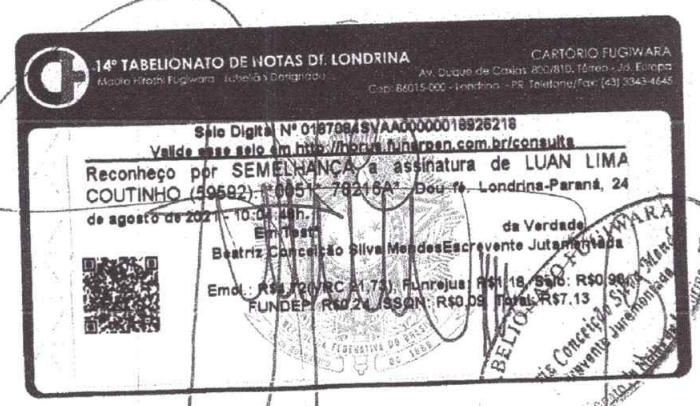 14º TABELIONATO DE NOTAS DE LONDRINA
CARTÓRIO FUGIWARA
Mauro Hiroshi Fugiwara - Tabelião Designado
Av. Duque de Caxias 800/810, Térreo - Jd. Europa
Cep: 86015-000 - Londrina - PR Telefone/Fax: (43) 3343-4645
Selo Digital Nº 0187084SVAA00000018926218
Valide esse selo em http://horus.funarpen.com.br/consulta
Reconheço por SEMELHANÇA a assinatura de LUAN LIMA
COUTINHO (59592) *0051* 78216A*. Dou fé. Londrina-Paraná, 24
de agosto de 2021 - 10:04:48h.
Em Testº da Verdade
Beatriz Conceição Silva MendesEscrevente Jutamentada
Emol.: R$4,72(VRC 21,73), Funrejus: R$1,18, Selo: R$0,90,
FUNDEP: R$0,24, ISSQN: R$0,09, Total: R$7,13
BELIO FUGIWARA
Conceição Silva Mend
Juramentada